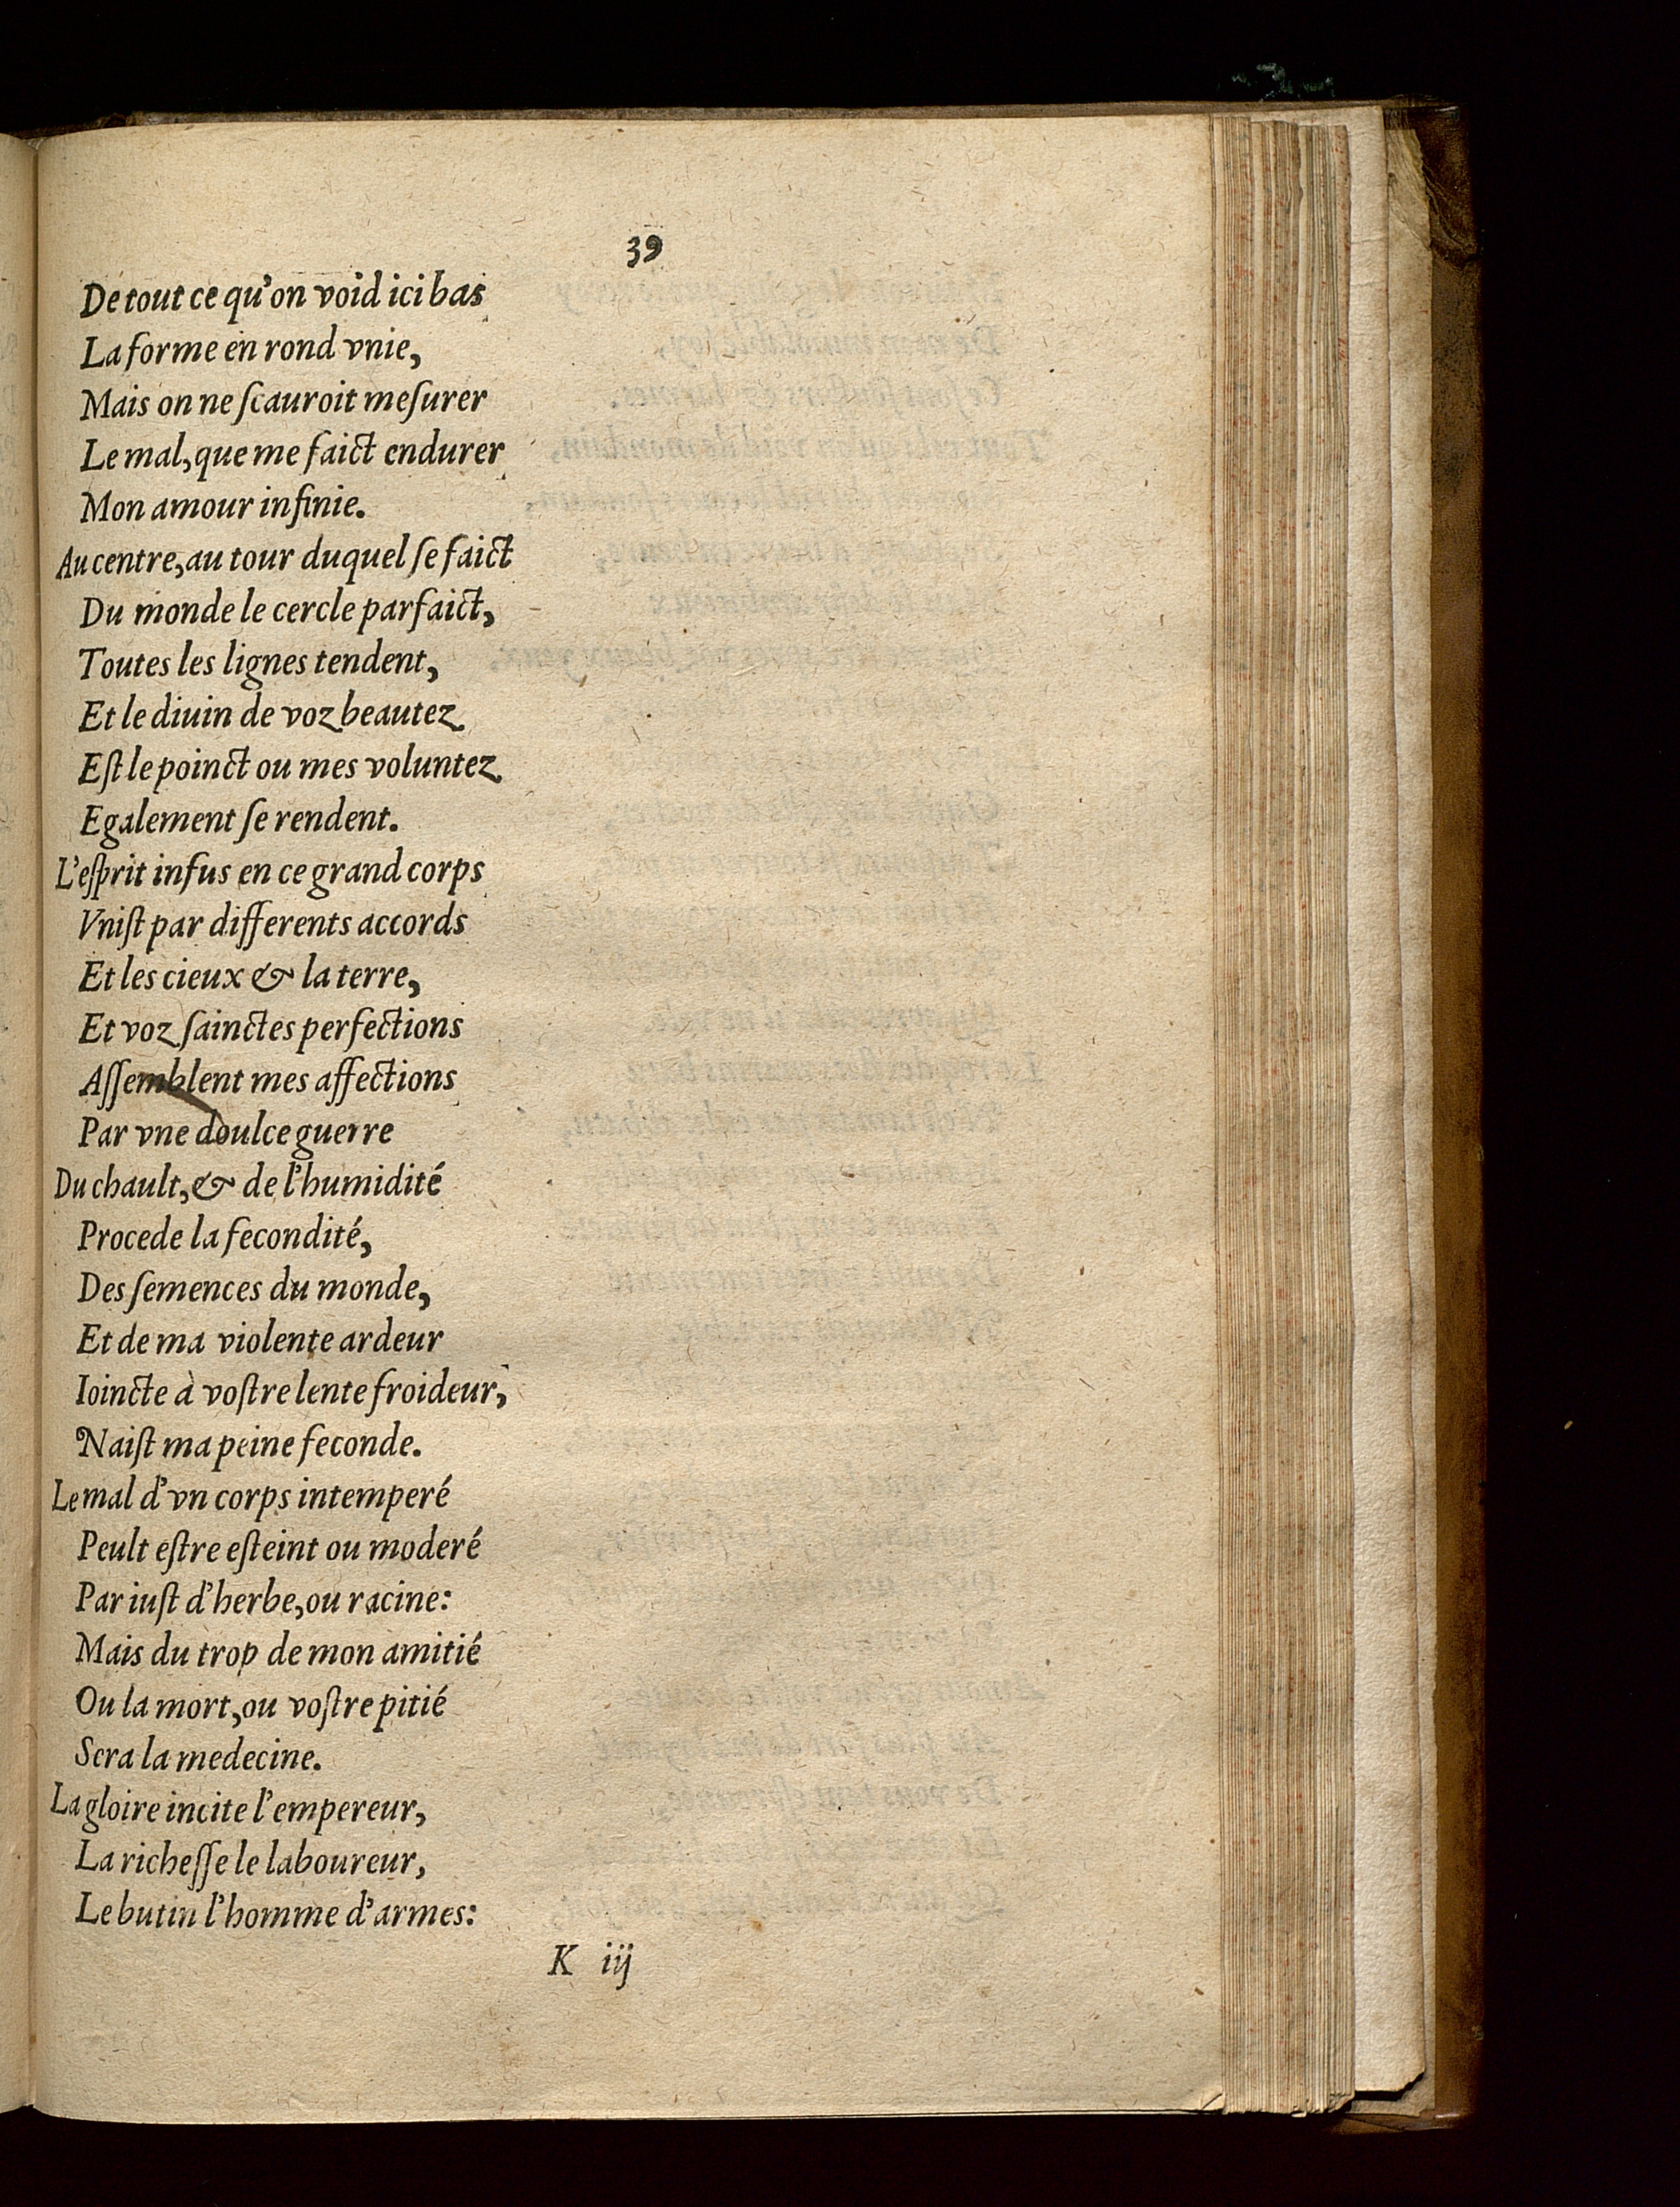 39
De tout ce qu'on void ici bas
La forme en rond vnie,
Mais on ne ſcauroit meſurer
Le mal, que me faict endurer
Mon amour infinie.
Au centre, au tour duquel ſe faict
Du monde le cercle parfaict,
Toutes les lignes tendent,
Et le diuin de voz beautez
Eſt le poinct ou mes voluntez
Egalement ſe rendent.
L'eſprit infus en ce grand corps
Vniſt par differents accords
Et les cieux & la terre,
Et voz ſainctes perfections
Aſſemblent mes affections
Par vne doulce guerre
Du chault, & de l'humidité
Procede la fecondité,
Des ſemences du monde,
Et de ma violente ardeur
Ioincte à voſtre lente froideur,
Naiſt ma peine feconde.
Le mal d'vn corps intemperé
Peult eſtre eſteint ou moderé
Par iuſt d'herbe, ou racine:
Mais du trop de mon amitié
Ou la mort, ou voſtre pitié
Sera la medecine.
La gloire incite l'empereur,
La richeſſe le laboureur,
Le butin l'homme d'armes:
K iij